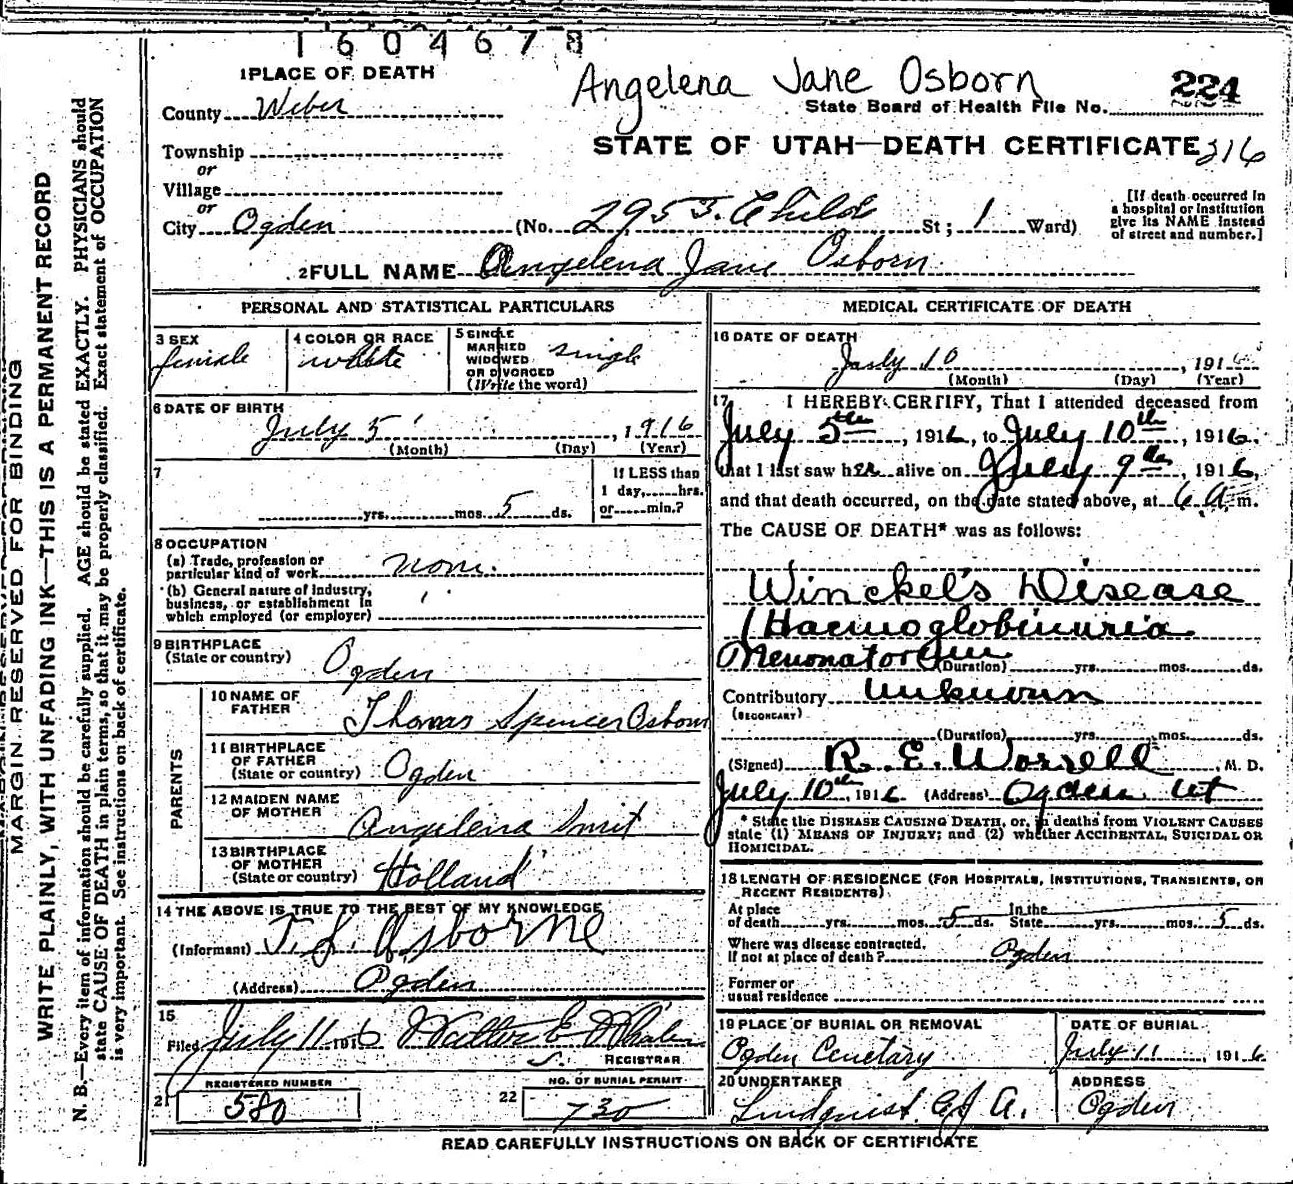 1604678
Angelena Jane Osborn
224
State Board of Health File No.
1 PLACE OF DEATH
County Weber
STATE OF UTAH—DEATH CERTIFICATE 216
Township
or
Village
or
City Ogden (No. 2953 Childs St; 1 Ward)
[If death occurred in a hospital or institution give its NAME instead of street and number.]
2 FULL NAME Angelena Jane Osborn
MARGIN RESERVED FOR BINDING
WRITE PLAINLY, WITH UNFADING INK—THIS IS A PERMANENT RECORD
N. B.—Every item of information should be carefully supplied. AGE should be stated EXACTLY. PHYSICIANS should
state CAUSE OF DEATH in plain terms, so that it may be properly classified. Exact statement of OCCUPATION
is very important. See instructions on back of certificate.
PERSONAL AND STATISTICAL PARTICULARS
3 SEX
female
4 COLOR OR RACE
white
5 SINGLE
MARRIED
WIDOWED
OR DIVORCED
(Write the word)
single
6 DATE OF BIRTH
July 5, 1916
(Month) (Day) (Year)
7
yrs. mos. 5 ds.
If LESS than
1 day, hrs.
or min.?
8 OCCUPATION
(a) Trade, profession or
particular kind of work none.
(b) General nature of industry,
business, or establishment in
which employed (or employer)
9 BIRTHPLACE
(State or country) Ogden
PARENTS
10 NAME OF
FATHER Thomas Spencer Osborn
11 BIRTHPLACE
OF FATHER
(State or country) Ogden
12 MAIDEN NAME
OF MOTHER Angelena Smit
13 BIRTHPLACE
OF MOTHER
(State or country) Holland
14 THE ABOVE IS TRUE TO THE BEST OF MY KNOWLEDGE
(Informant) T. S. Osborne
(Address) Ogden
15
Filed July 11 1916 Walter E Whalen
REGISTRAR
21 REGISTERED NUMBER
580
22 NO. OF BURIAL PERMIT
730
MEDICAL CERTIFICATE OF DEATH
16 DATE OF DEATH
July 10, 1916
(Month) (Day) (Year)
17 I HEREBY CERTIFY, That I attended deceased from
July 5th, 1916, to July 10th, 1916,
that I last saw her alive on July 9th, 1916,
and that death occurred, on the date stated above, at 6 a.m.
The CAUSE OF DEATH* was as follows:
Winckel's Disease
(Haemoglobinuria
Neonatorum (Duration) yrs. mos. ds.
Contributory Unknown
(SECONDARY)
(Duration) yrs. mos. ds.
(Signed) R. E. Worrell, M. D.
July 10th, 1916 (Address) Ogden Ut
* State the DISEASE CAUSING DEATH, or, in deaths from VIOLENT CAUSES
state (1) MEANS OF INJURY; and (2) whether ACCIDENTAL, SUICIDAL OR
HOMICIDAL.
18 LENGTH OF RESIDENCE (FOR HOSPITALS, INSTITUTIONS, TRANSIENTS, OR
RECENT RESIDENTS)
At place
of death yrs. mos. 5 ds. In the
State yrs. mos. 5 ds.
Where was disease contracted,
if not at place of death? Ogden
Former or
usual residence
19 PLACE OF BURIAL OR REMOVAL
Ogden Cemetary
DATE OF BURIAL
July 11, 1916
20 UNDERTAKER
Lindquist
ADDRESS
Ogden
READ CAREFULLY INSTRUCTIONS ON BACK OF CERTIFICATE